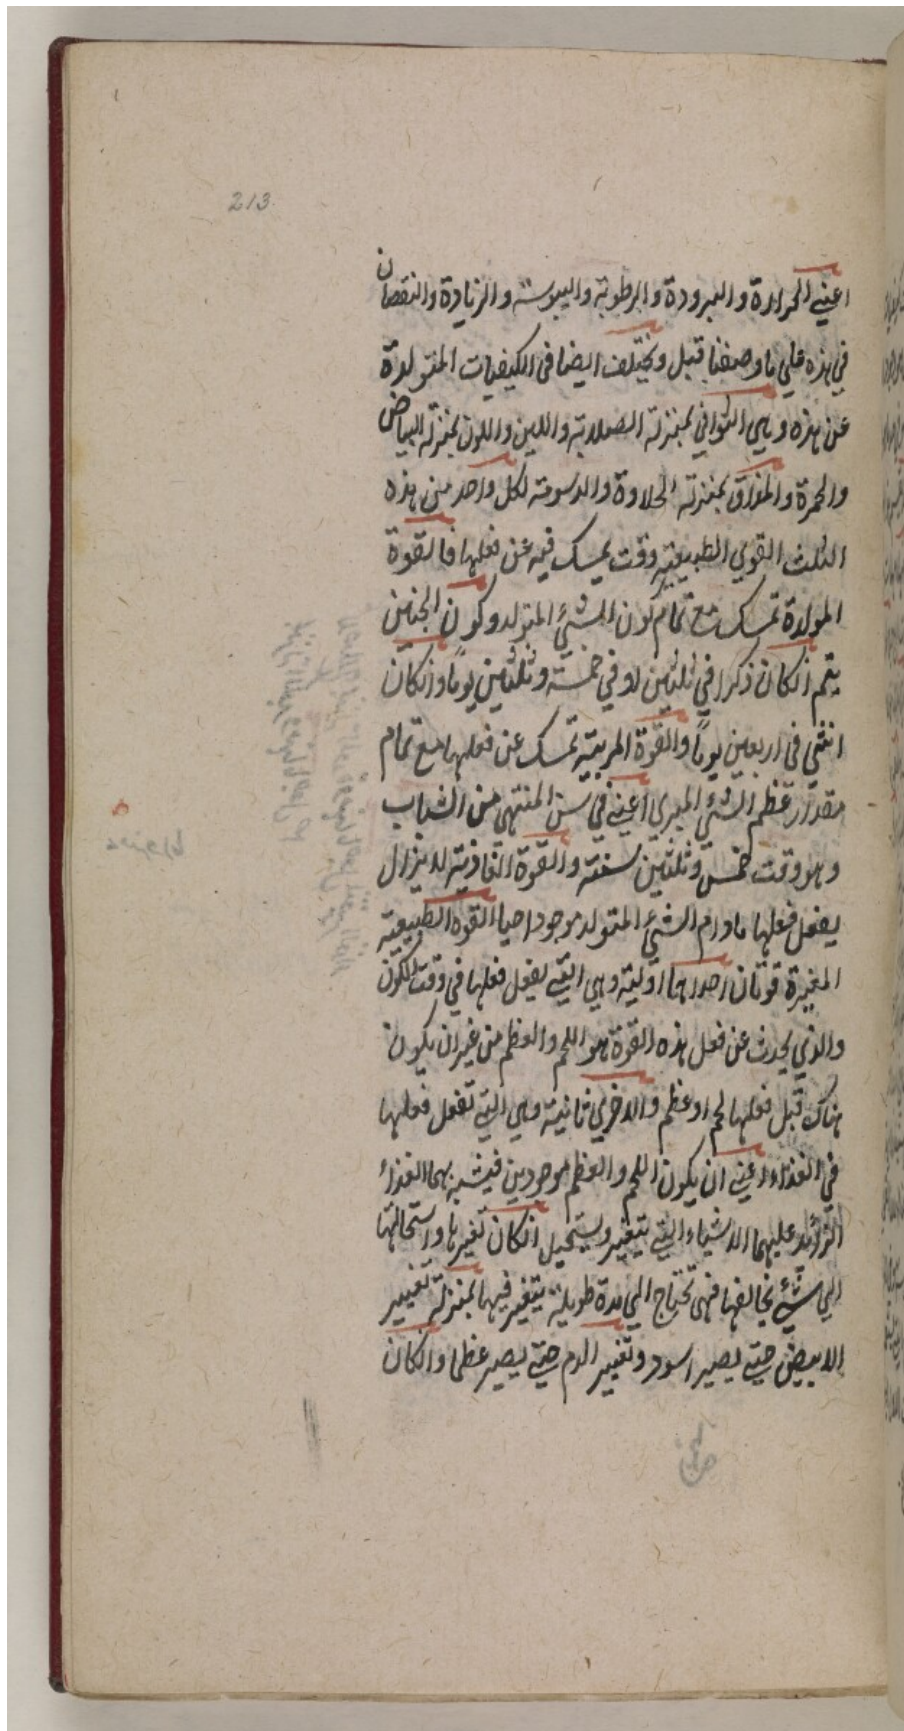 213
اعني الحرارة والبرودة والرطوبة واليبوسة والزيادة والنقصان
في هذه علي ما وصفنا قبل ويختلف ايضا في الكيفيات المتولدة
عن هذه وهي الثواني بمنزلة الصلابة واللين واللون بمنزلة البياض
والحمرة والمذاق بمنزلة الحلاوة والدسومة لكل واحد من هذه
الثلث القوي الطبيعية وقت يمسك فيه عن فعلها فالقوة
المولدة تمسك مع تمام كون الشئ المتولد وكون الجنين
يتم انكان ذكرا في ثلثين او في خمسة وثلثين يوماً وانكان
انثي في اربعين يوماً والقوة المربية تمسك عن فعلها مع تمام
مقدار عظم الشئ المربي اعني في سن المنتهي من الشباب
وهو وقت خمس وثلثين سنة والقوة الغاذية لا يزال
يفعل فعلها ما دام الشئ المتولد موجودا حيا القوه الطبيعية
المغيرة قوتان احداهما اولية وهي التي يفعل فعلها في وقت الكون
والذي يحدث عن فعل هذه القوة هو اللحم والعظم من غير ان يكون
هناك قبل فعلها لحم او عظم والاخري ثانية وهي التي تفعل فعلها
في الغذاء اعني ان يكون اللحم والعظم موجودين فيشبه بهما الغذاء
الزائد عليهما الاشياء التي يتغير ويستحيل انكان تغيرها واستحالتها
الي شئ يخالفها فهي تحتاج الي مدة طويلة يتغير فيها بمنزلة تغيير
الابيض حتي يصير اسود وتغيير الدم حتي يصير عظما وانكان